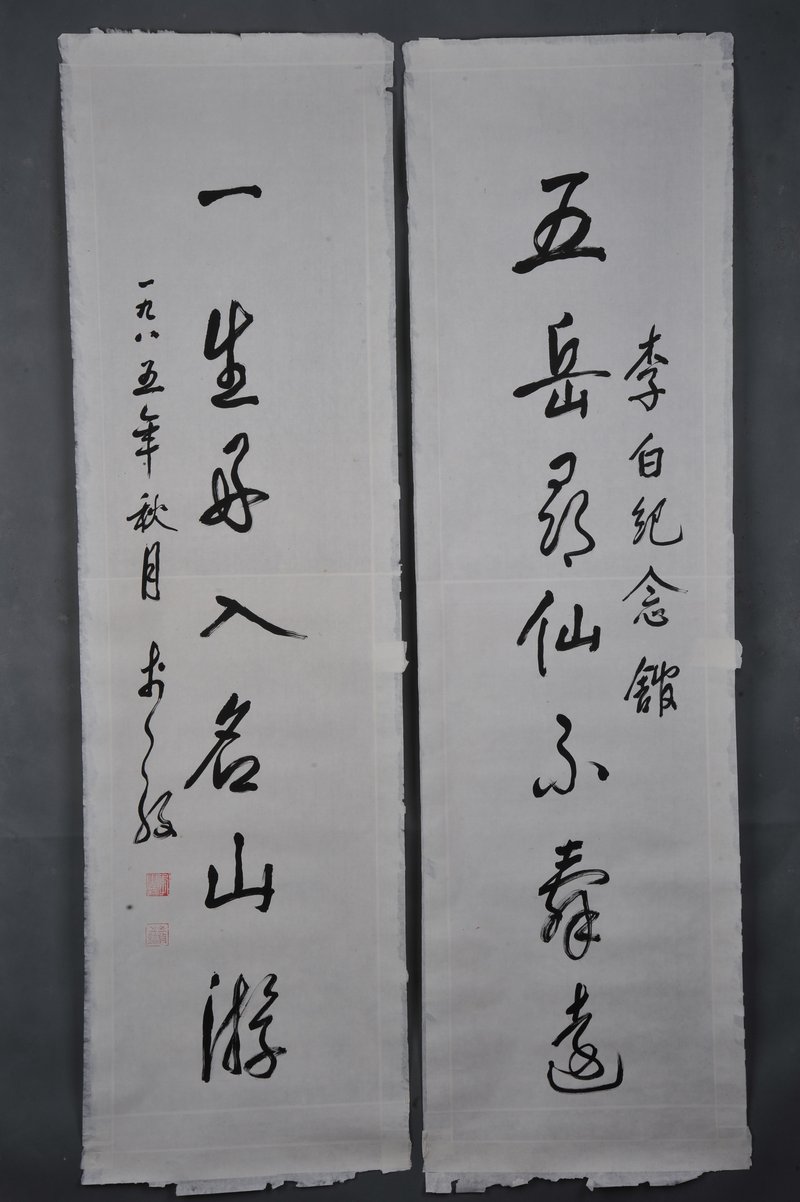 李白纪念馆
五岳寻仙不辞远
一生好入名山游
一九八五年秋月